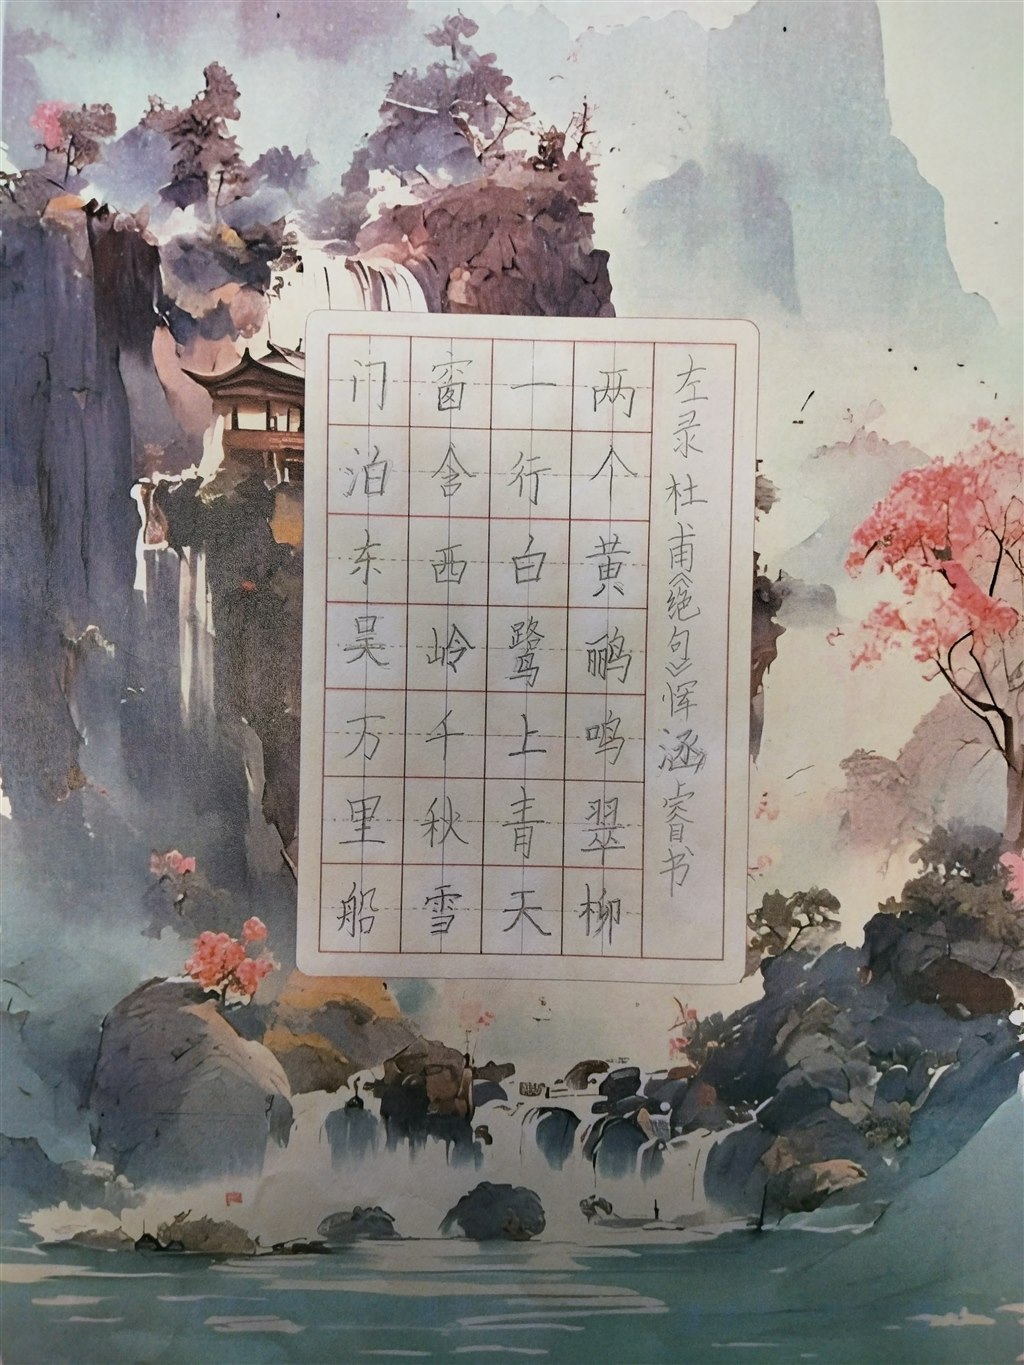 左录杜甫《绝句》恽涵睿书
两个黄鹂鸣翠柳
一行白鹭上青天
窗含西岭千秋雪
门泊东吴万里船